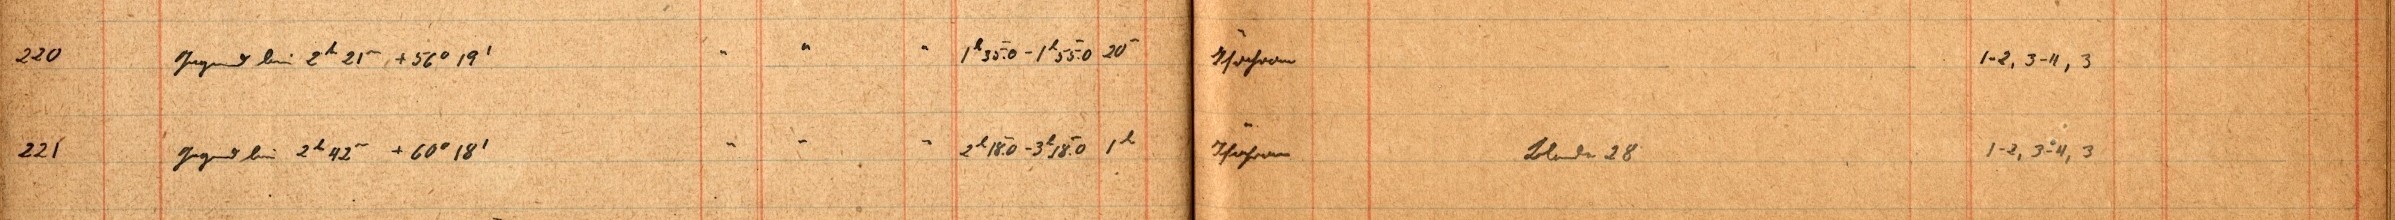 220 Gegend bei 2h 21m +56° 19' " " " 1h 35m.0 - 1h 55m.0 20m 1-2, 3-4, 3
221 Gegend bei 2h 42m +60° 18' " " " 2h 18m.0 - 3h 18m.0 1h Blende 28 1-2, 3-4, 3